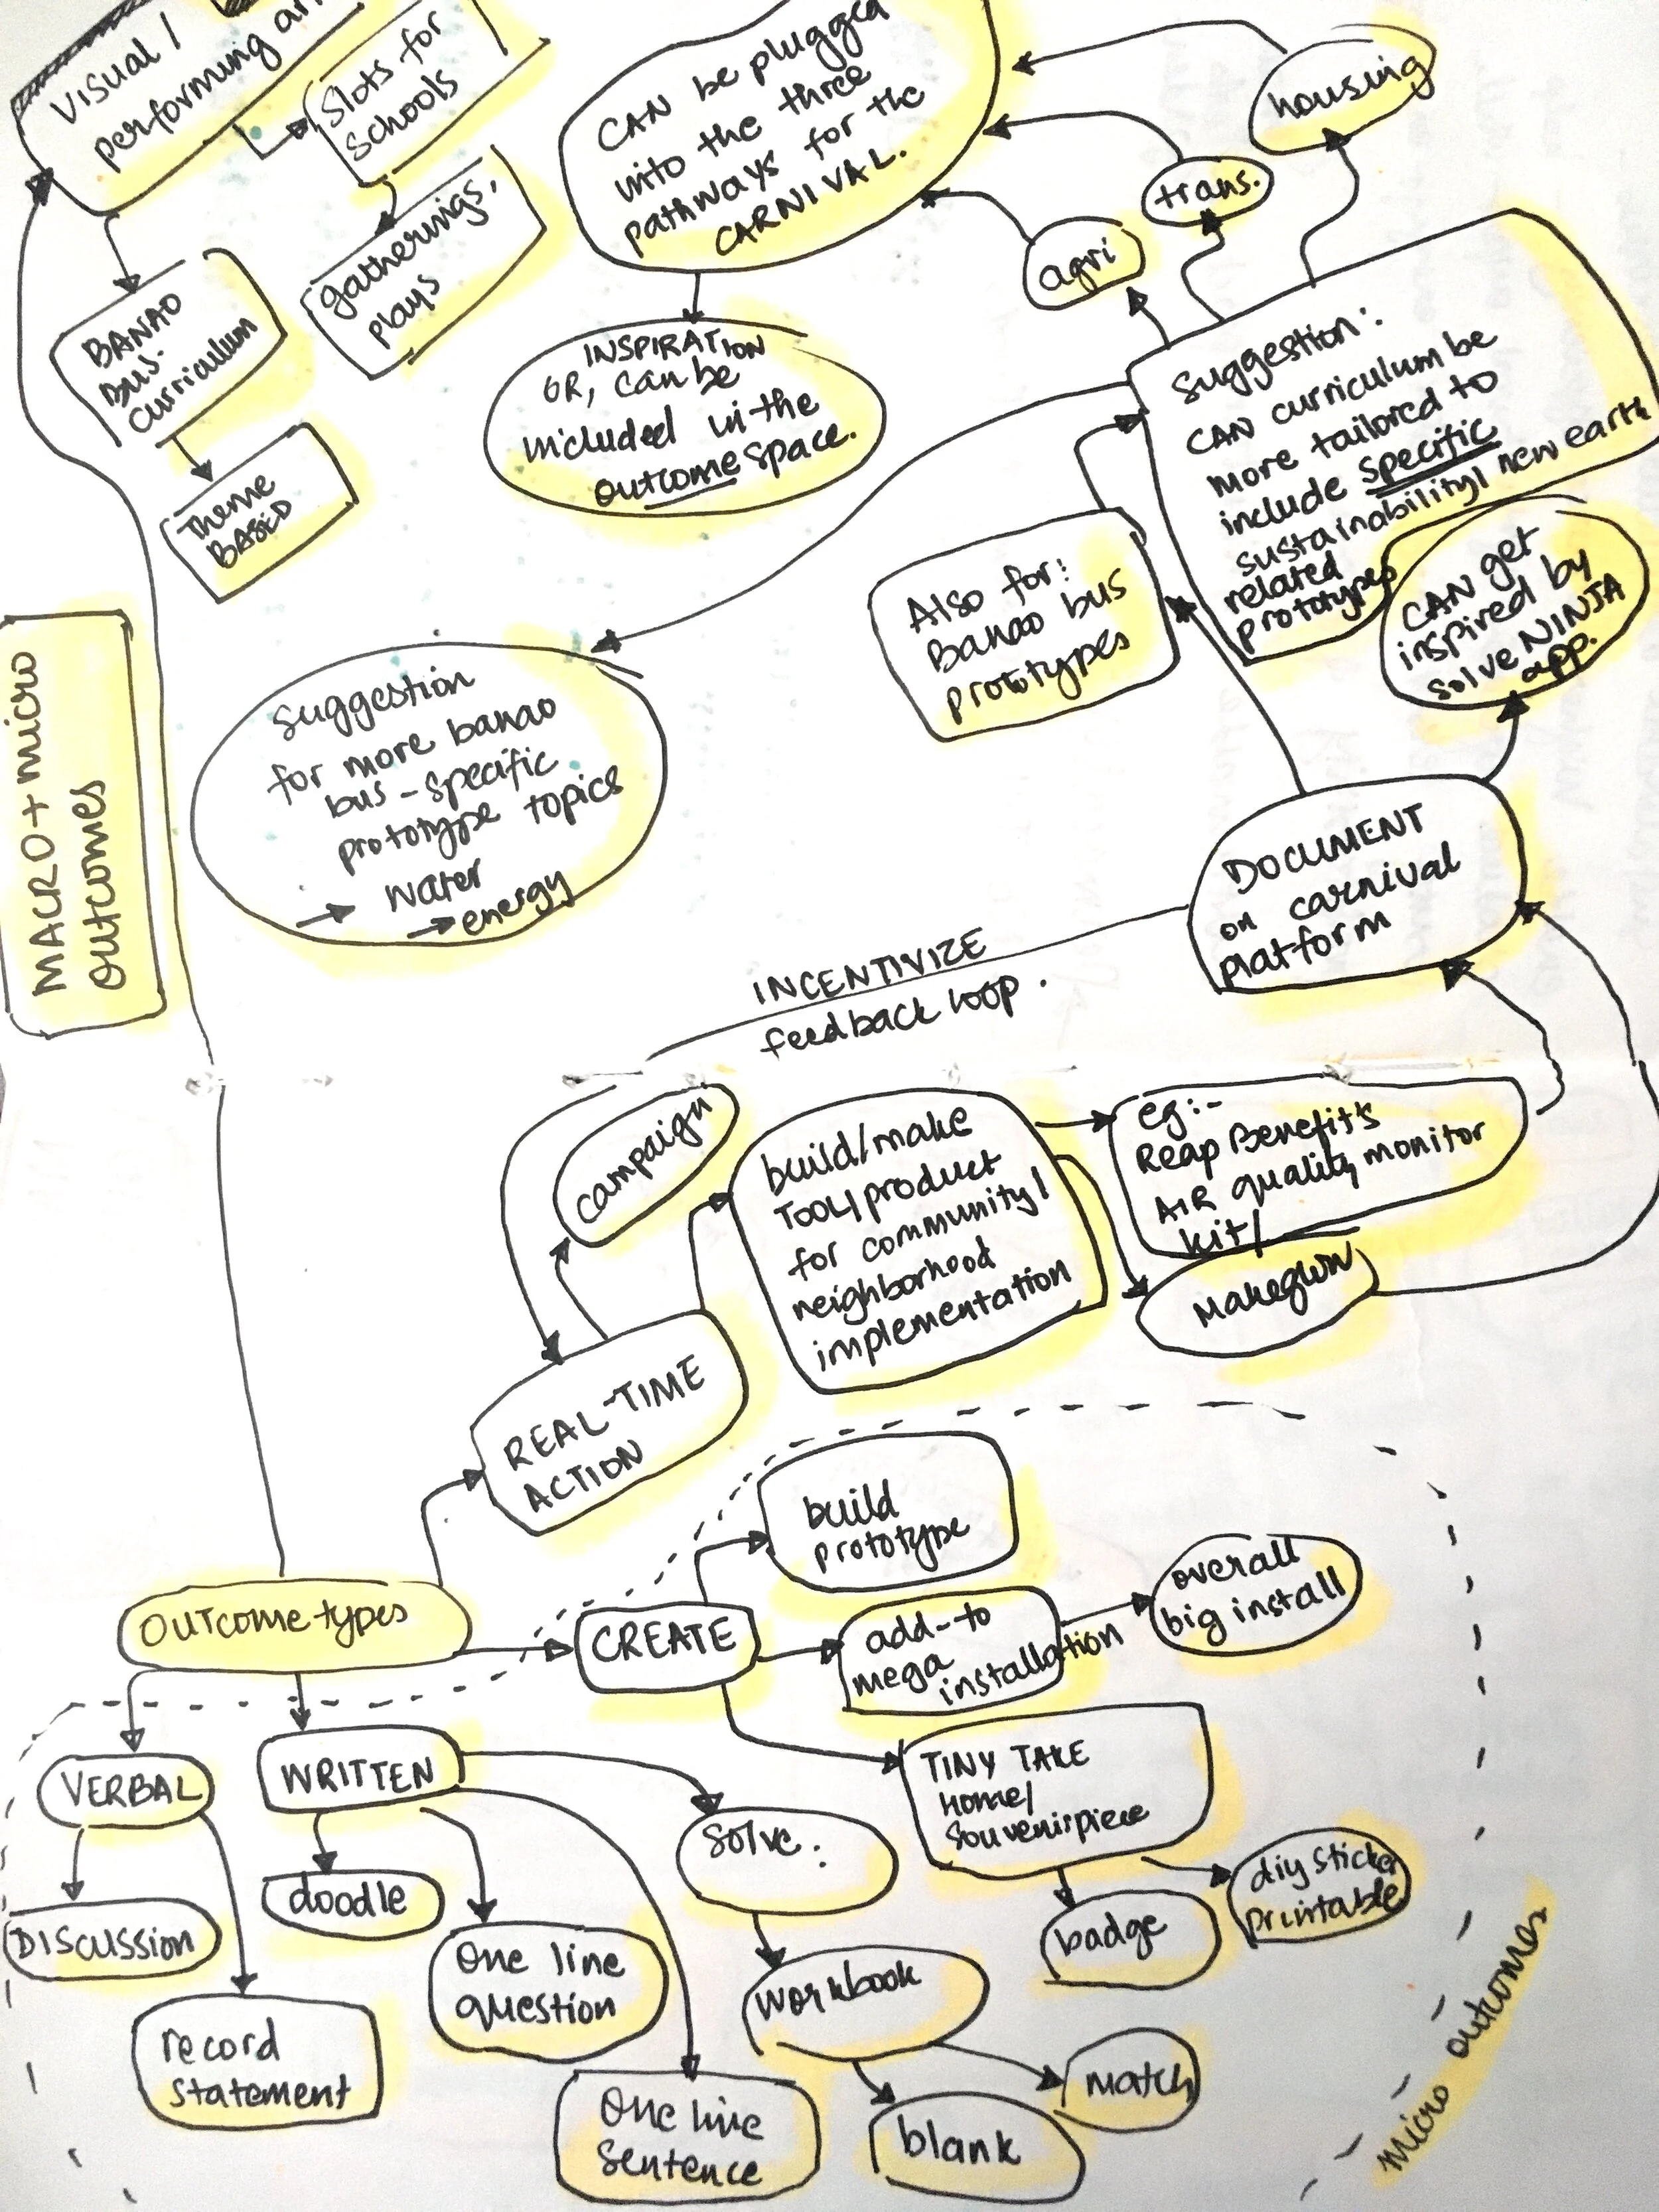 Visual /
performing
Slots for
Schools
gatherings,
plays
BANAO
BUS-
curriculum
Theme
BASED
CAN be plugged
into the three
pathways for the
CARNIVAL.
INSPIRATION
OR, can be
included in the
outcome space.
housing
trans.
agri
Suggestion:
CAN curriculum be
more tailored to
include specific
sustainability/ new earth
related
prototypes
CAN get
inspired by
solve NINJA
app.
Also for:
Banao bus
prototypes
MACRO+micro
outcomes
suggestion
for more banao
bus-specific
prototype topics
→ water
→ energy
DOCUMENT
on carnival
platform
INCENTIVIZE
feedback loop.
campaign
build/make
Tool/product
for community/
neighborhood
implementation
eg:-
Reap Benefit's
AIR quality monitor
kit/
REAL-TIME
ACTION
build
prototype
OUTCOME types
CREATE
add-to
mega
installation
overall
big install
TINY TAKE
Home/
Souvenir piece
VERBAL
WRITTEN
Solve:
diy sticker
printable
badge
doodle
DISCUSSION
One line
question
workbook
record
statement
match
One line
Sentence
blank
micro outcomes